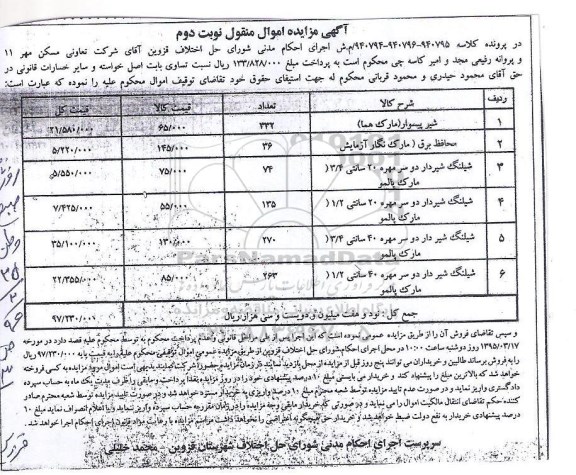 آگهی مزایده اموال منقول نوبت دوم
در پرونده کلاسه ۹۴۰۷۹۵-۹۴۰۷۹۶-۹۴۰۷۹۴/م.ش اجرای احکام مدنی شورای حل اختلاف قزوین آقای شرکت تعاونی مسکن مهر ۱۱
و پروانه رفیعی مجد و امیر کاسه چی محکوم است به پرداخت مبلغ ۱۳۳/۸۲۸/۰۰۰ ریال نسبت تساوی بابت اصل خواسته و سایر خسارات قانونی در
حق آقای محمود حیدری و محمود قربانی محکوم له جهت استیفای حقوق خود تقاضای توقیف اموال محکوم علیه را نموده که عبارت است:
ردیف شرح کالا تعداد قیمت کالا قیمت کل
۱ شیر پیسوار(مارک هما) ۳۳۲ ۶۵/۰۰۰ ۲۱/۵۸۰/۰۰۰
۲ محافظ برق ( مارک نگار آزمایش ۳۶ ۱۴۵/۰۰۰ ۵/۲۲۰/۰۰۰
۳ شیلنگ شیردار دو سر مهره ۲۰ سانتی ۳/۴ ( ۷۴ ۷۵/۰۰۰ ۵/۵۵۰/۰۰۰
مارک پالمو
۴ شیلنگ شیردار دو سر مهره ۲۰ سانتی ۱/۲ ( ۱۳۵ ۵۵/۰۰۰ ۷/۴۲۵/۰۰۰
مارک پالمو
۵ شیلنگ شیر دار دو سر مهره ۴۰ سانتی ۳/۴ ( ۲۷۰ ۱۳۰/۰۰۰ ۳۵/۱۰۰/۰۰۰
مارک پالمو
۶ شیلنگ شیر دار دو سر مهره ۴۰ سانتی ۱/۲ ( ۲۶۳ ۸۵/۰۰۰ ۲۲/۳۵۵/۰۰۰
مارک پالمو
جمع کل : نود و هفت میلیون و دویست و سی هزار ریال ۹۷/۲۳۰/۰۰۰
ParsNamadData
و سپس تقاضای فروش آن را از طریق مزایده عمومی نموده است که این اجرا پس از طی مراحل قانونی و عدم پرداخت محکوم به توسط محکوم علیه قصد دارد در مورخه
۱۳۹۵/۰۳/۱۷ روز دوشنبه ساعت ۱۰:۰۰ در محل اجرای احکام شورای حل اختلاف قزوین از طریق مزایده عمومی اموال توقیفی محکوم علیه را به قیمت پایه ۹۷/۲۳۰/۰۰۰ ریال
را به فروش برساند طالبین و خریداران می توانند پنج روز قبل از مزایده از محل بازدید نمایند در زمان مزایده حضور شرکت نمایند بدیهی است اموال مورد مزایده به کسی فروخته
خواهد شد که بالاترین مبلغ را پیشنهاد کند و خریدار می بایستی مبلغ ۱۰ درصد پیشنهادی خود را در روز مزایده نقداً پرداخت و مابقی را ظرف مدت یک ماه به حساب سپرده
دادگستری واریز نماید و در صورت عدم تایید مزایده توسط شعبه محترم مبلغ ۱۰ درصد واریزی به خریدار مسترد خواهد شد و در صورت تایید مزایده توسط شعبه محترم صادر
کننده حکم تقاضای انتقال مالکیت اموال را می نماید و در صورتی که خریدار مابقی وجه مزایده را در زمان مقرر به حساب سپرده واریز ننماید و یا اعلام انصراف نماید مبلغ ۱۰
درصد پیشنهادی خریدار به نفع دولت ضبط خواهد شد و خریدار حق هیچگونه اعتراضی را نخواهد داشت مراسم مزایده با رعایت مواد قانون اجرای احکام اجرا خواهد شد .
سرپرست اجرای احکام مدنی شورای حل اختلاف شهرستان قزوین محمد خلیلی